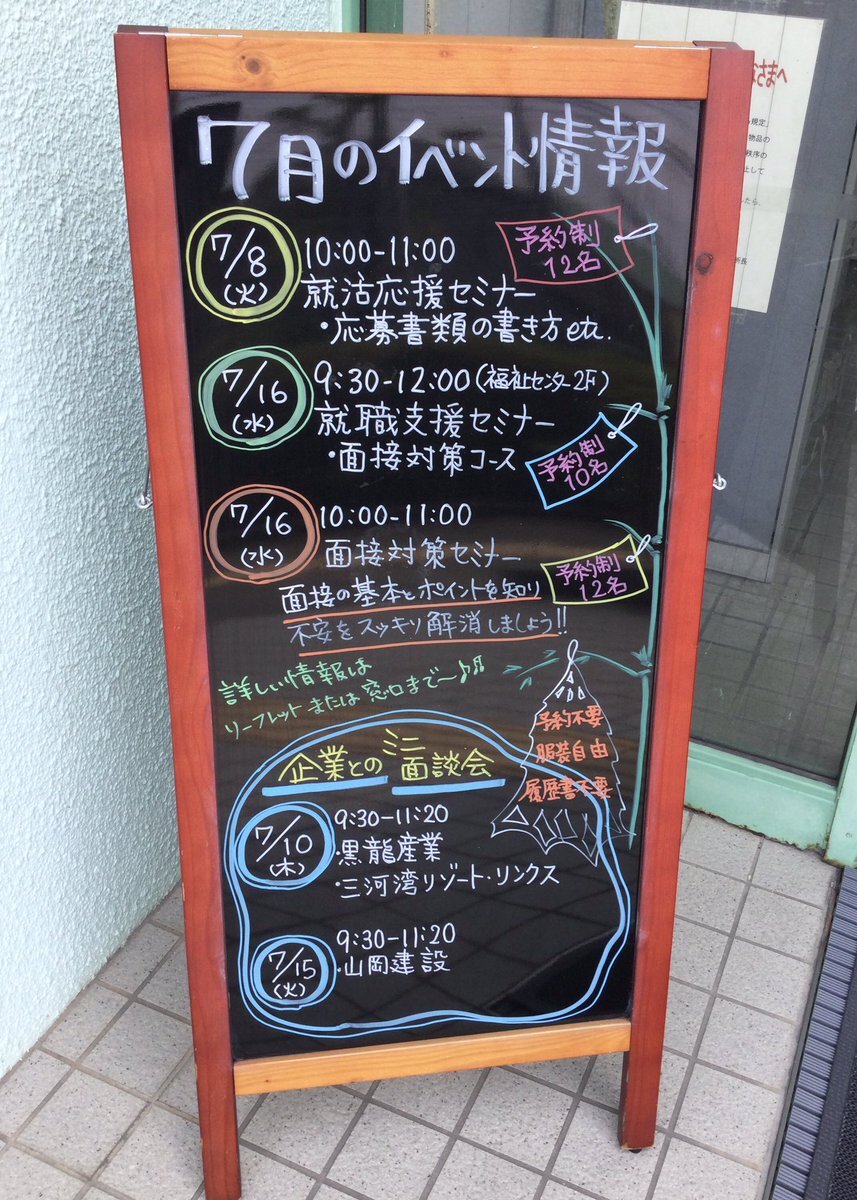 7月のイベント情報
7/8
(火)
10:00-11:00
就活応援セミナー
・応募書類の書き方etc.
予約制
12名
7/16
(水)
9:30-12:00(福祉センター2F)
就職支援セミナー
・面接対策コース
予約制
10名
7/16
(水)
10:00-11:00
面接対策セミナー
面接の基本とポイントを知り
不安をスッキリ解消しましょう!!
予約制
12名
詳しい情報は
リーフレットまたは窓口まで〜♪♫
予約不要
服装自由
履歴書不要
企業とのミニ面談会
7/10
(木)
9:30-11:20
・黒龍産業
・三河湾リゾート・リンクス
7/15
(火)
9:30-11:20
・山岡建設
さまへ
規定」
物品の
秩序の
止して
したら、
所長